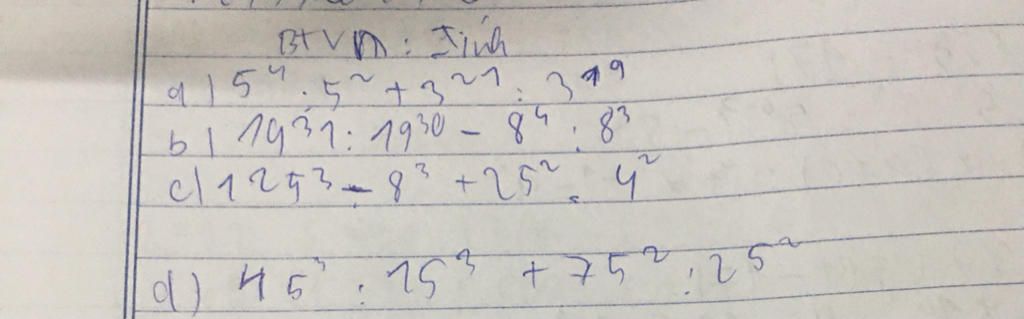 BTVN: Tính
a) 5⁴ : 5² + 3²¹ : 3¹⁹
b) 19³¹ : 19³⁰ - 8⁴ : 8³
c) 125³ - 8³ + 25² . 4²
d) 45³ : 15³ + 75² : 25²